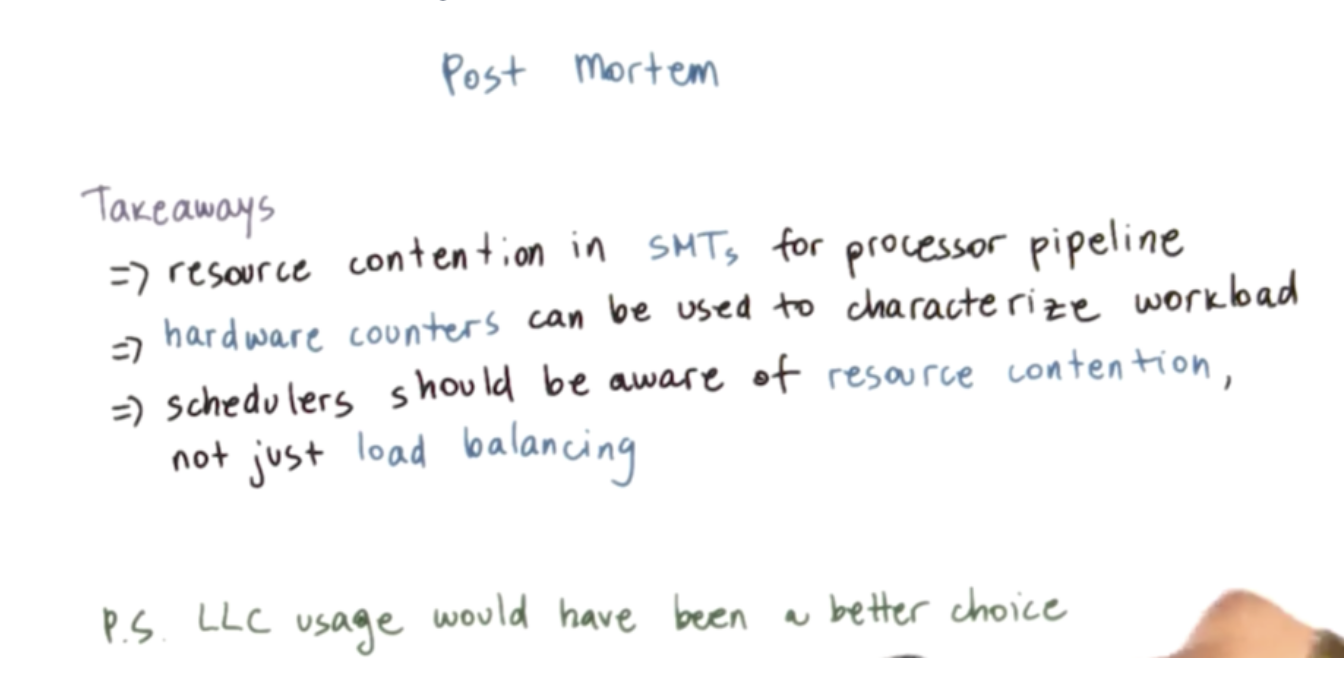 Post Mortem
Takeaways
=> resource contention in SMTs for processor pipeline
=> hardware counters can be used to characterize workload
=> schedulers should be aware of resource contention,
not just load balancing
P.S. LLC usage would have been a better choice